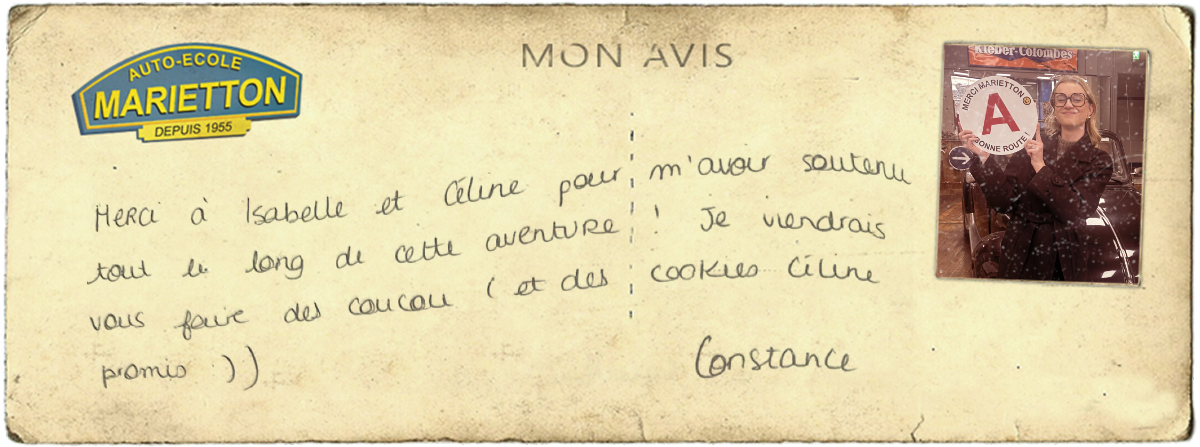 AUTO-ECOLE
MARIETTON
DEPUIS 1955
MON AVIS
Kleber-Colombes
MERCI MARIETTON
A
BONNE ROUTE !
Merci à Isabelle et Céline pour m'avoir soutenu
tout le long de cette aventure ! Je viendrais
vous faire des coucou (et des cookies Céline
promis :))
Constance